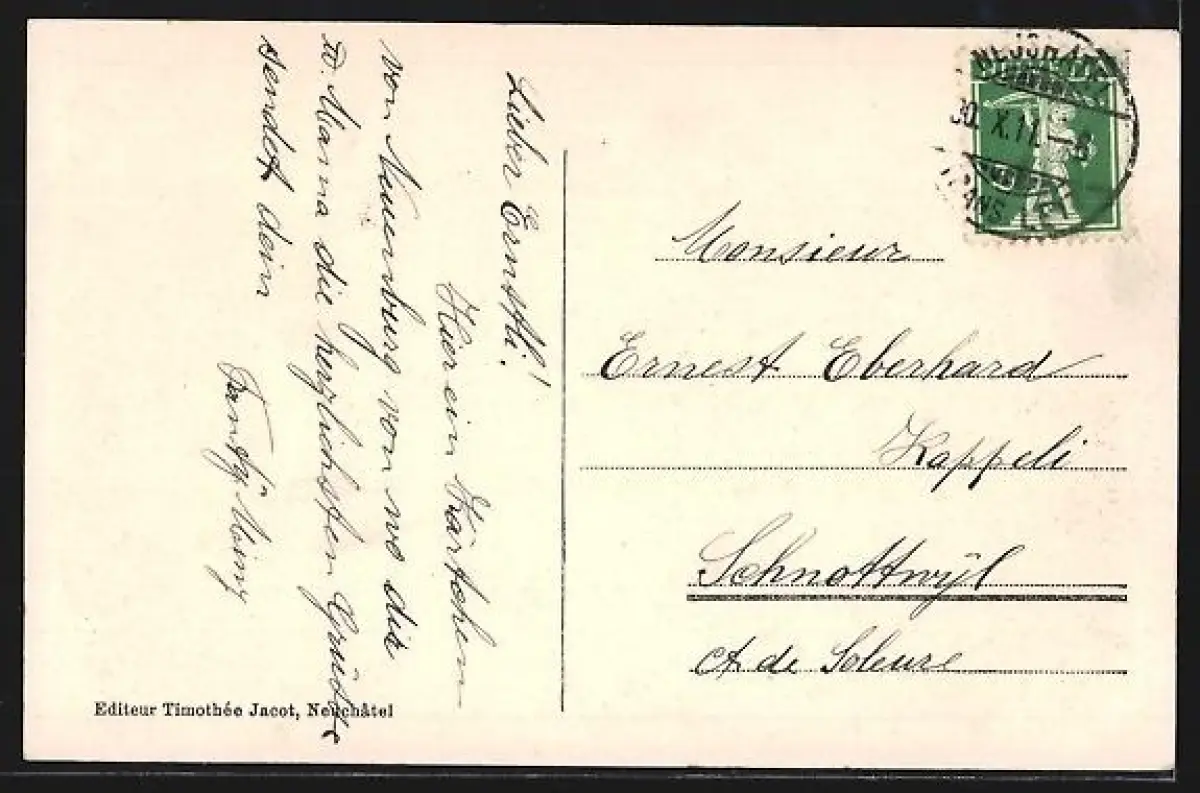 Lieber Ernstli!
Hier ein Kärtchen
von Neuenburg von wo dir
u. Mama die herzlichsten Grüsse
sendet dein
NEUCHATEL
30. X. 11. - 8
Monsieur
Ernest Eberhard
Kappeli
Schnottwyl
Ct de Soleure
Editeur Timothée Jacot, Neuchâtel